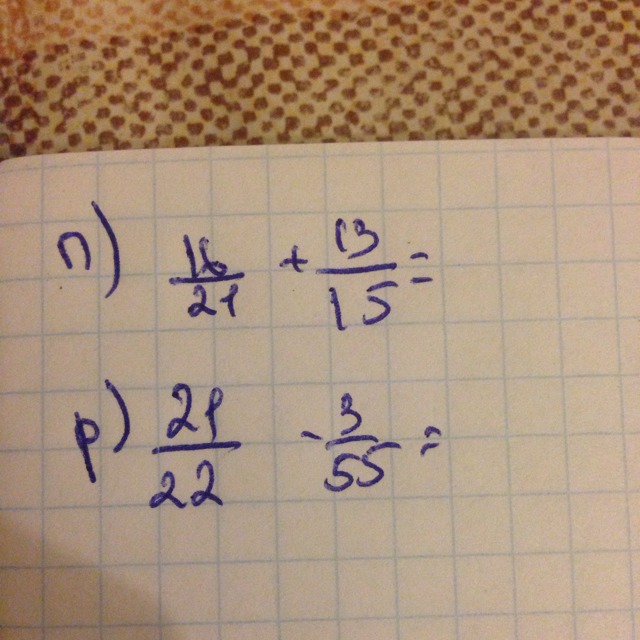 п) 16/21 + 13/15 =
р) 21/22 - 3/55 =